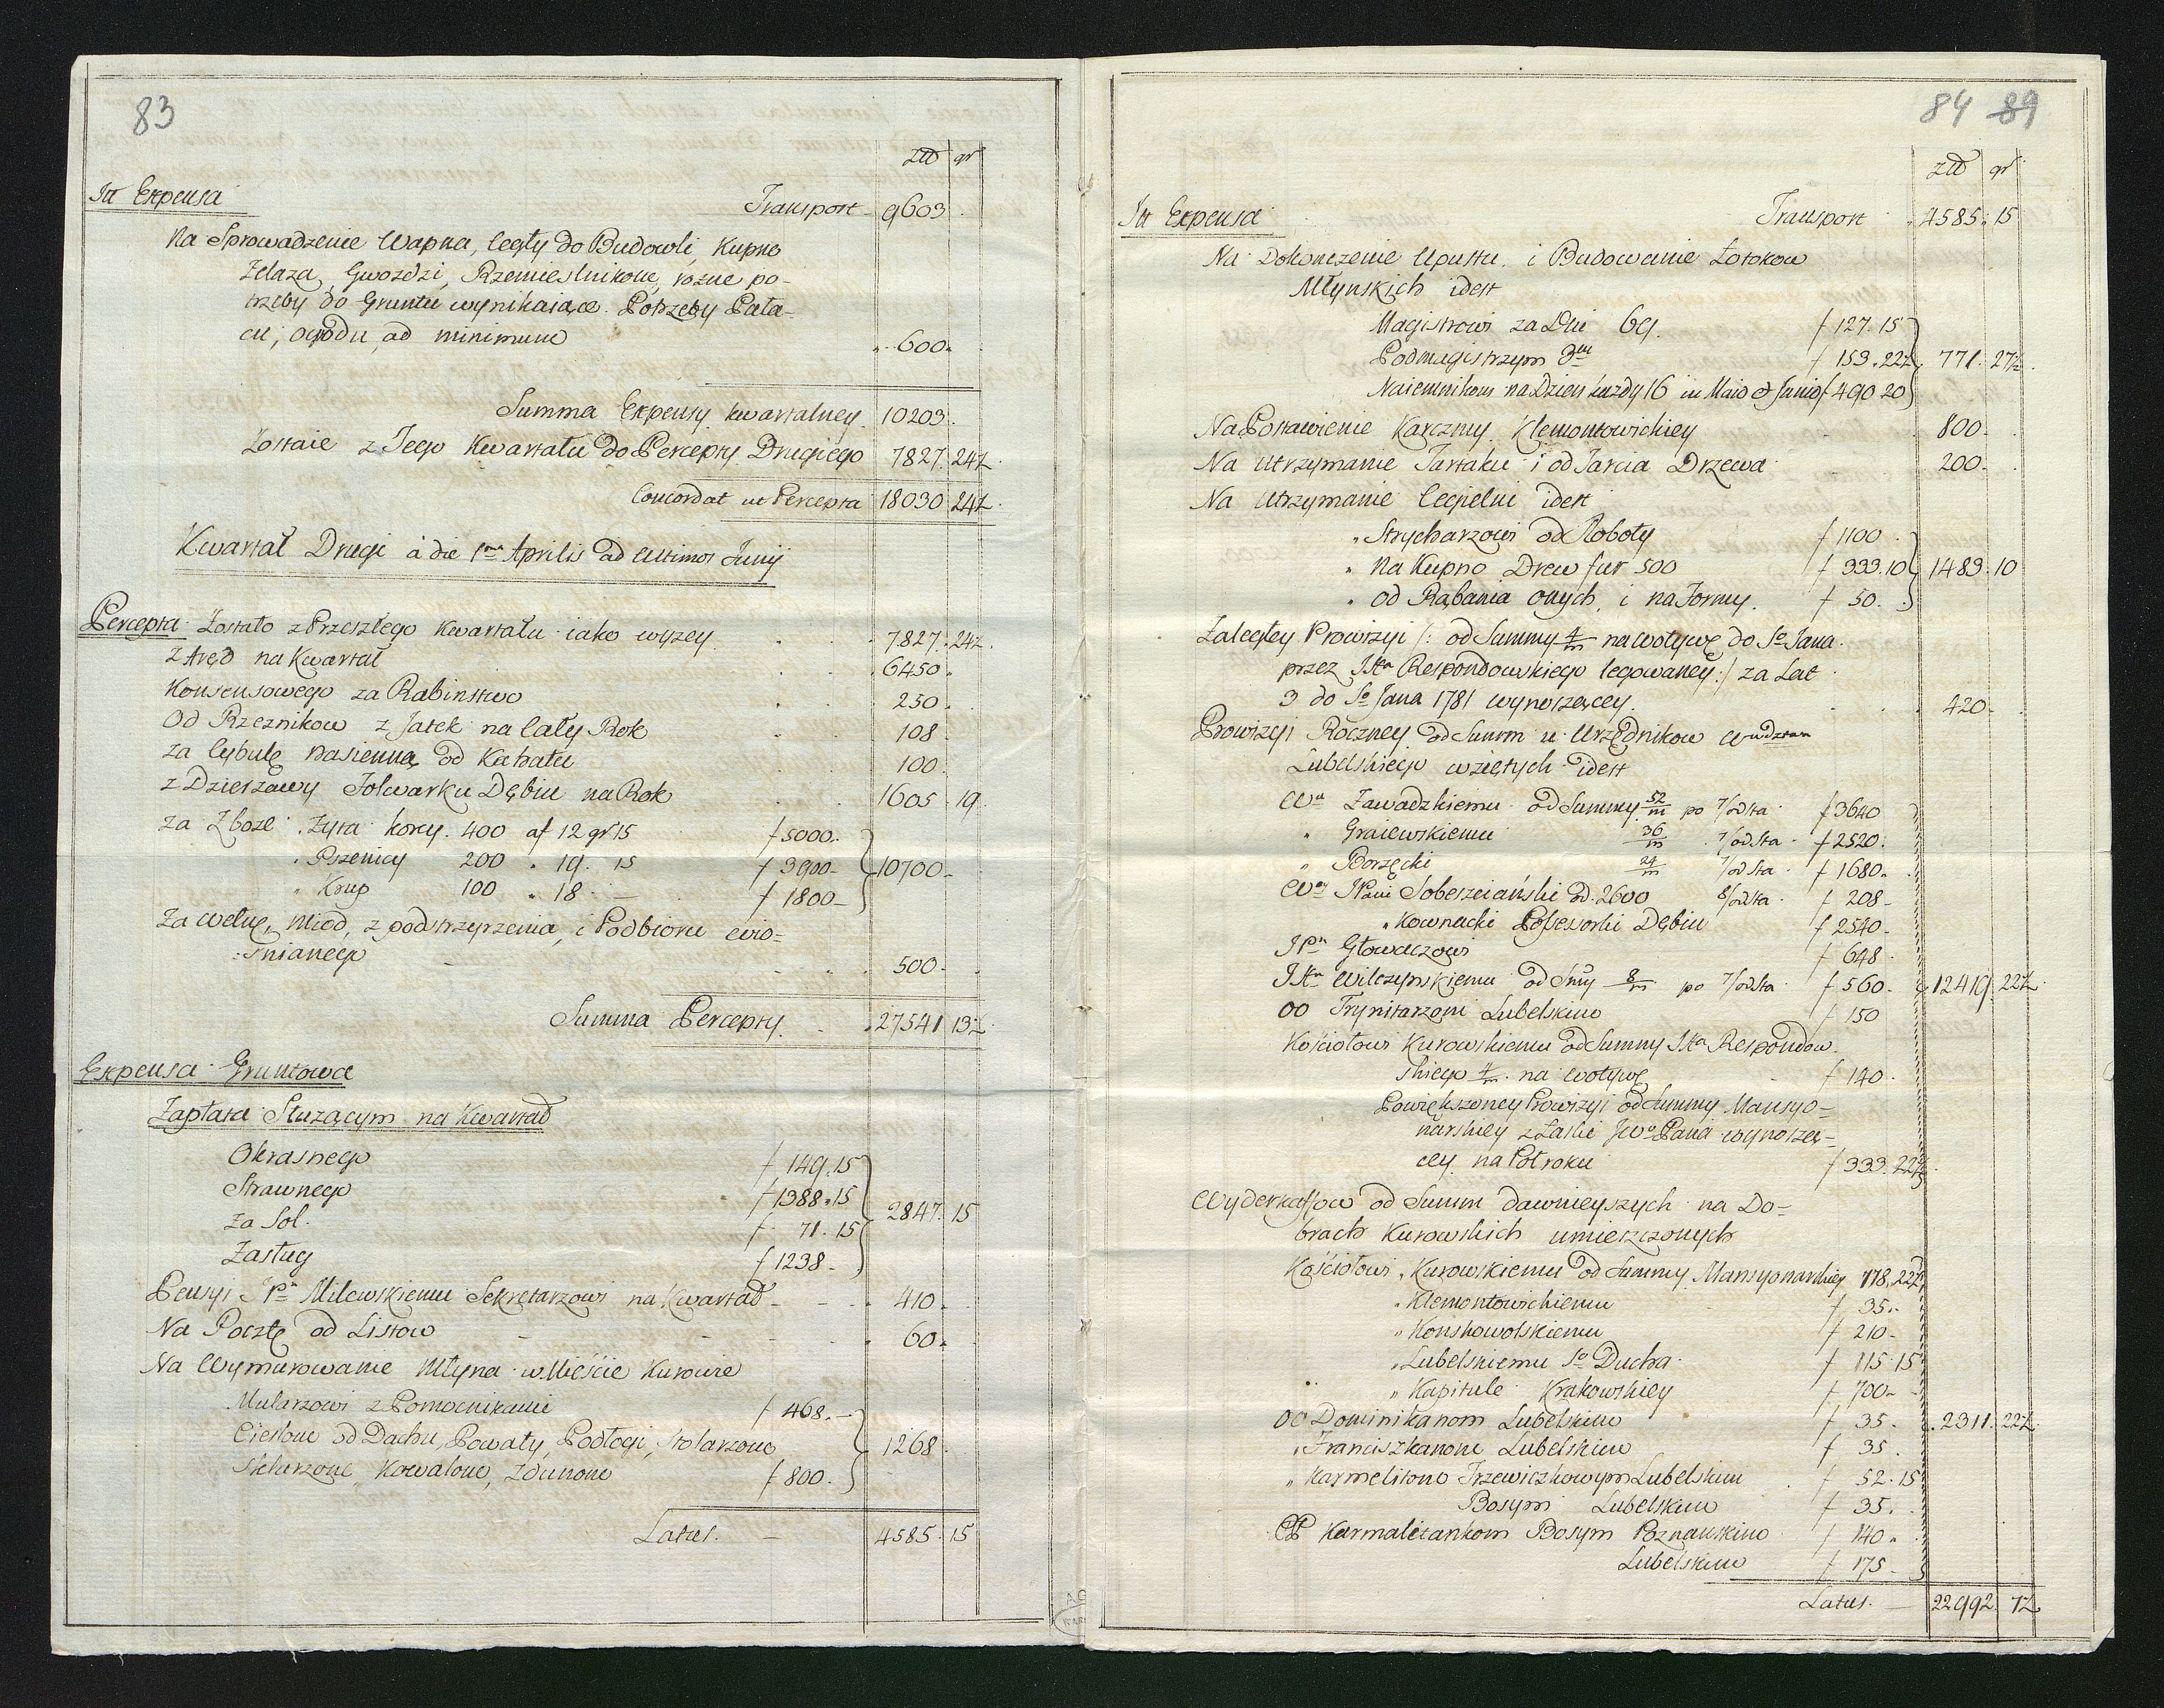 83
złł gr
In Expensa Transport 9603
Na Sprowadzenie Wapna, Cegły do Budowli, Kupno
Żelaza, Gwozdzi, Rzemieslnikow, rozne po-
trzeby do Gruntu wynikaiące. Potrzeby Pała-
cu, ogrodu, ad minimum 600
Summa Expensy kwartalney 10203
Zostaie z Tego Kwartału do Percepty Drugiego 7827 24½
Concordat ut Percepta 18030 24½
Kwartał Drugi à die 1ma Aprilis ad Ultimos Junij
Percepta Zostało z Przeszłego Kwartału iako wyzey 7827 24½
z Aręd na Kwartał 6450
Konsensowego za Rabinstwo 250
Od Rzeznikow z Jatek na Cały Rok 108
za Cybulę nasienną od Kahału 100
z Dzierzawy Folwarku Dębin na Rok 1605 19
za Zboże Żyta korcy 400 af 12 gr 15 f 5000
" Pszenicy 200 " 19. 15 f 3900 10700
" Krup 100 " 18 f 1800
Za wełnę, miod, z podstrzyzenia, i Podbioru wio-
snianego 500
Summa Percepty 27541 13½
Expensa Gruntowa
Zapłata Służącym na Kwartał
Okrasnego f 149.15
Strawnego f 1388.15
za Sol f 71.15 2847 15
Zasług f 1238
Pensyi JPu Milewskiemu Sekretarzowi na Kwartał 410
Na Pocztę od Listow 60
Na Wymurowanie Młyna w Mieście Kurowie
Mularzowi z Pomocnikami f 468
Cieślom od Dachu, Powały, Podłogi, Stolarzom 1268
Sklarzom, Kowalom, Zdunom f 800
Latus 4585 15
84 89
złł gr
In Expensa Transport 4585 15
Na Dokonczenie Upustu i Budowanie Łotokow
Młynskich idest
Magistrowi za Dni 69 f 127.15
Podmagistrzym 3m f 153.22½ 771 27½
Naiemnikom na Dzien każdy 16 in Maio & Junio f 490 20
Na Postawienie Karczmy Klemontowickiey 800
Na Utrzymanie Tartaku i od Tarcia Drzewa 200
Na Utrzymanie Cegielni idest
" Strycharzowi od Roboty f 1100
" na Kupno Drew fur 500 f 333.10 1483 10
" od Rąbania onych, i na Formy f 50
Zaległey Prowizyi /: od Summy 4/m na wotywę do So Jana
przez JXa Respondowskiego legowaney :/ za Lat
3 do So Jana 1781 wynoszącey 420
Prowizyi Roczney od Summ u Urzędnikow Wwdztwa
Lubelskiego wziętych idest
Wu Zawadzkiemu od Summy 52/m po 7/od sta f 3640
" Graiewskiemu 36/m 7/od sta f 2520
" Borzęcki 24/m 7/od sta f 1680
Wey JPani Sobeszciański od 2600 8/od sta f 208
" Kownacki Possessorki Dębin f 2540
JPu Głowaczowi f 648
JXu Wilczynskiemu od Smy 8/m po 7/od sta f 560 12419 22½
OO Trynitarzom Lubelskim f 150
Kościołowi Kurowskiemu od Summy JXa Respondow-
skiego 4/m na wotywę f 140
Powiększoney Prowizyi od Summy Mansyo-
narskiey z Łaski JWo Pana wynoszą-
cey na Pół roku f 333.22½
Wyderkaffow od Summ dawnieyszych na Do-
brach Kurowskich umieszczonych
Kościołowi " Kurowskiemu od Summy Mansyonarskiey 778.22½
" Klemontowickiemu f 35
" Konskowolskiemu f 210
" Lubelskiemu So Ducha f 115.15
" Kapitule Krakowskiey f 700
OO Dominikanom Lubelskim f 35 2311 22½
" Franciszkanom Lubelskim f 35
" Karmelitom Trzewiczkowym Lubelskim f 52.15
Bosym Lubelskim f 35
PP Karmalitankom Bosym Poznanskim f 140
Lubelskim f 175
Latus 22992 7½